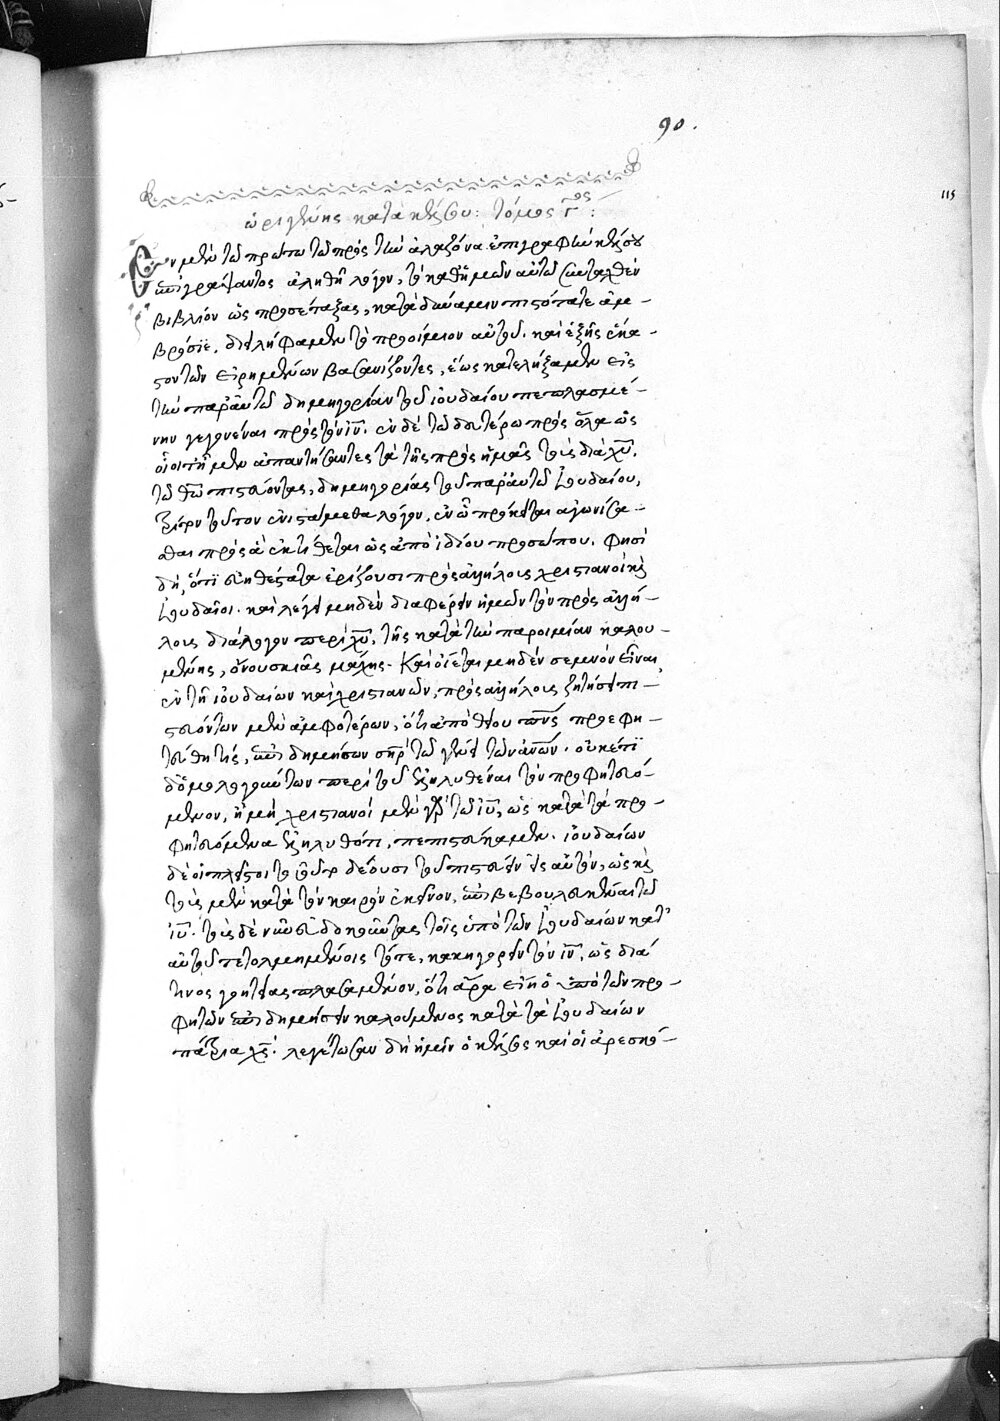 90.
115
ὠριγένης κατὰ κέλσου: τόμος γ^ος:
Ἐν μὲν τῶ πρώτω τῶ πρὸς τὴν ἀλαζόνα ἐπιγραφὴν κέλσου
ἐπιγράψαντος ἀληθῆ λόγον, τὸ καθ' ἡμῶν αὐτῶ συνταχθὲν
βιβλίον ὡς προσέταξας, κατὰ δύναμιν πιστότατε ἀμ-
βρόσιε. διειλήφαμεν τὸ προοίμιον αὐτοῦ. καὶ ἑξῆς ἕκα-
στον τῶν εἰρημένων βασανίζοντες, ἕως κατελήξαμεν εἰς
τὴν παρ' αὐτῶ δημηγορίαν τοῦ ἰουδαίου πεπλασμέ-
νην γεγονέναι πρὸς τὸν ιν. ἐν δὲ τῶ δευτέρω πρὸς ὅλα ὡς
οἷοι τ' ἦμεν ἀπαντήσαντες τὰ τῆς πρὸς ἡμᾶς τοὺς διὰ χυ.
τῶ θω πιστεύοντας, δημηγορίας τοῦ παρ' αὐτῶ ἰουδαίου,
τρίτον τοῦτον ἐνιστάμεθα λόγον. ἐν ὧ πρόκειται ἀγωνίσα-
σθαι πρὸς ἃ ἐκτίθεται ὡς ἀπὸ ἰδίου προσώπου. φησὶ
δὴ, ὅτι εὐηθέστατα ἐρίζουσι πρὸς ἀλλήλους χριστιανοὶ καὶ
ἰουδαῖοι. καὶ λέγει μηδὲν διαφέρειν ἡμῶν τὸν πρὸς ἀλλή-
λους διάλογον περὶ χυ, τῆς κατὰ τὴν παροιμίαν καλου-
μένης, ὄνου σκιᾶς μάχης. Καὶ οἴεται μηδὲν σεμνὸν εἶναι
ἐν τῆ ἰουδαίων καὶ χριστιανῶν, πρὸς ἀλλήλους ζητήσει πι-
στευόντων μὲν ἀμφοτέρων, ὅτι ἀπὸ θείου πνς προεφη-
τεύθη τίς, ἐπιδημήσων σηρ τῶ γένει τῶν ανων. οὐκέτι
δ' ὁμολογούντων περὶ τοῦ ἐληλυθέναι τὸν προφητευό-
μενον, ἢ μή. χριστιανοὶ μὲν γὰρ τῶ ιυ, ὡς κατὰ τὰ προ-
φητευόμενα ἐληλυθότι, πεπιστεύκαμεν. ἰουδαίων
δὲ οἱ πλεῖστοι τοσοῦτον δέουσι τοῦ πιστεύειν εἰς αὐτὸν, ὡς καὶ
τοὺς μὲν κατὰ τὸν καιρὸν ἐκεῖνον, ἐπιβεβουλευκέναι τῶ
ιυ. τοὺς δὲ νῦν εὐδοκοῦντας τοῖς ὑπὸ τῶν ἰουδαίων κατ'
αὐτοῦ τετολμημένοις τότε, κακηγορεῖν τὸν ιν, ὡς διά
τινος γοητείας πλασάμενον, ὅτι ἄρα εἴη ὁ ὑπὸ τῶν προ-
φητῶν ἐπιδημήσειν καλούμενος κατὰ τὰ ἰουδαίων
πάτρια χς. λεγέτωσαν δὴ ἡμῖν ὁ κέλσος καὶ οἱ ἀρεσκό-